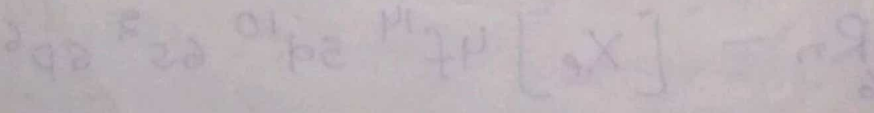 Rn = [Xe] 4f¹⁴ 5d¹⁰ 6s² 6p⁶